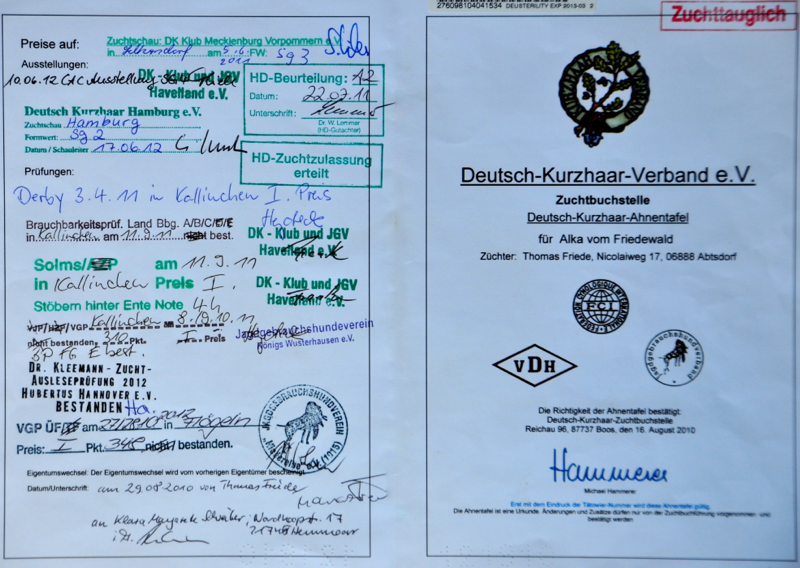 Preise auf:
Zuchtschau: DK Klub Mecklenburg Vorpommern e.V.
in am 5.6. FW: Sg 3
2011
Ausstellungen:
10.06.12 CAC Ausstellung
DK - Klub und JGV
Havelland e.V.
HD-Beurteilung: A2
Datum: 22.07.11
Unterschrift:
Dr. W. Lemmer
(HD-Gutachter)
Deutsch Kurzhaar Hamburg e.V.
Zuchtschau Hamburg
Formwert: Sg 2
Datum / Schauleiter 17.06.12
HD-Zuchtzulassung
erteilt
Prüfungen:
Derby 3.4.11 in Kallinchen I. Preis
Brauchbarkeitsprüf. Land Bbg. A/B/C/D/E
in Kallinchen am 11.9.11 nicht best.
DK - Klub und JGV
Havelland e.V.
Solms/ am 11.9.11
in Kallinchen Preis I.
Stöbern hinter Ente Note 4h
DK - Klub und JGV
Havelland e.V.
VJP/HZP/VGP Kallinchen 8./9.10.11
nicht bestanden. 310 Pkt. I - Preis
Jagdgebrauchshundeverein
Königs Wusterhausen e.V.
Dr. Kleemann - Zucht-
Ausleseprüfung 2012
Hubertus Hannover e.V.
BESTANDEN Ha.
VGP in Flögeln
Preis: I Pkt. 348 nicht/ bestanden.
JAGDGEBRAUCHSHUNDVEREIN
(1915)
Eigentumswechsel: Der Eigentumswechsel wird vom vorherigen Eigentümer bescheinigt.
Datum/Unterschrift: am 29.08.2010 von Thomas Friede
an Klara Nordhoopstr. 17
21745 Hemmoor
276098104041534 DEUSTERILITY EXP 2013-03 2
Zuchttauglich
KURZHAAR VERBAND
Deutsch-Kurzhaar-Verband e.V.
Zuchtbuchstelle
Deutsch-Kurzhaar-Ahnentafel
für Alka vom Friedewald
Züchter: Thomas Friede, Nicolaiweg 17, 06888 Abtsdorf
FEDERATION CYNOLOGIQUE INTERNATIONALE
FCI
VDH
Jagdgebrauchshundverband
Die Richtigkeit der Ahnentafel bestätigt:
Deutsch-Kurzhaar-Zuchtbuchstelle
Reichau 96, 87737 Boos, den 16. August 2010
Hammerer
Michael Hammerer
Erst mit dem Eindruck der Tätowier-Nummer wird diese Ahnentafel gültig.
Die Ahnentafel ist eine Urkunde. Änderungen und Zusätze dürfen nur von der Zuchtbuchführung vorgenommen - und
bestätigt werden